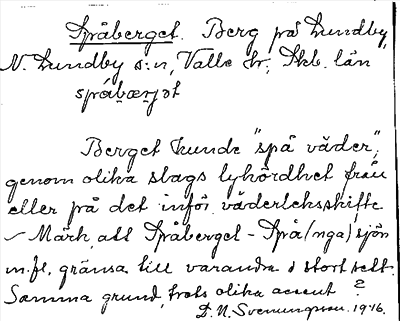 Spåberget. Berg på Lundby,
N. Lundby s:n, Valle hr, Skb. län
spábærjət
Berget kunde "spå väder",
genom olika slags lyhördhet från
eller på det inför väderleksskifte
– Märk, att Spåberget – Spå(nga)sjön
m.fl. gränsa till varandra i stort sett.
Samma grund, trots olika accent?
D. N. Svenungsson. 1916.